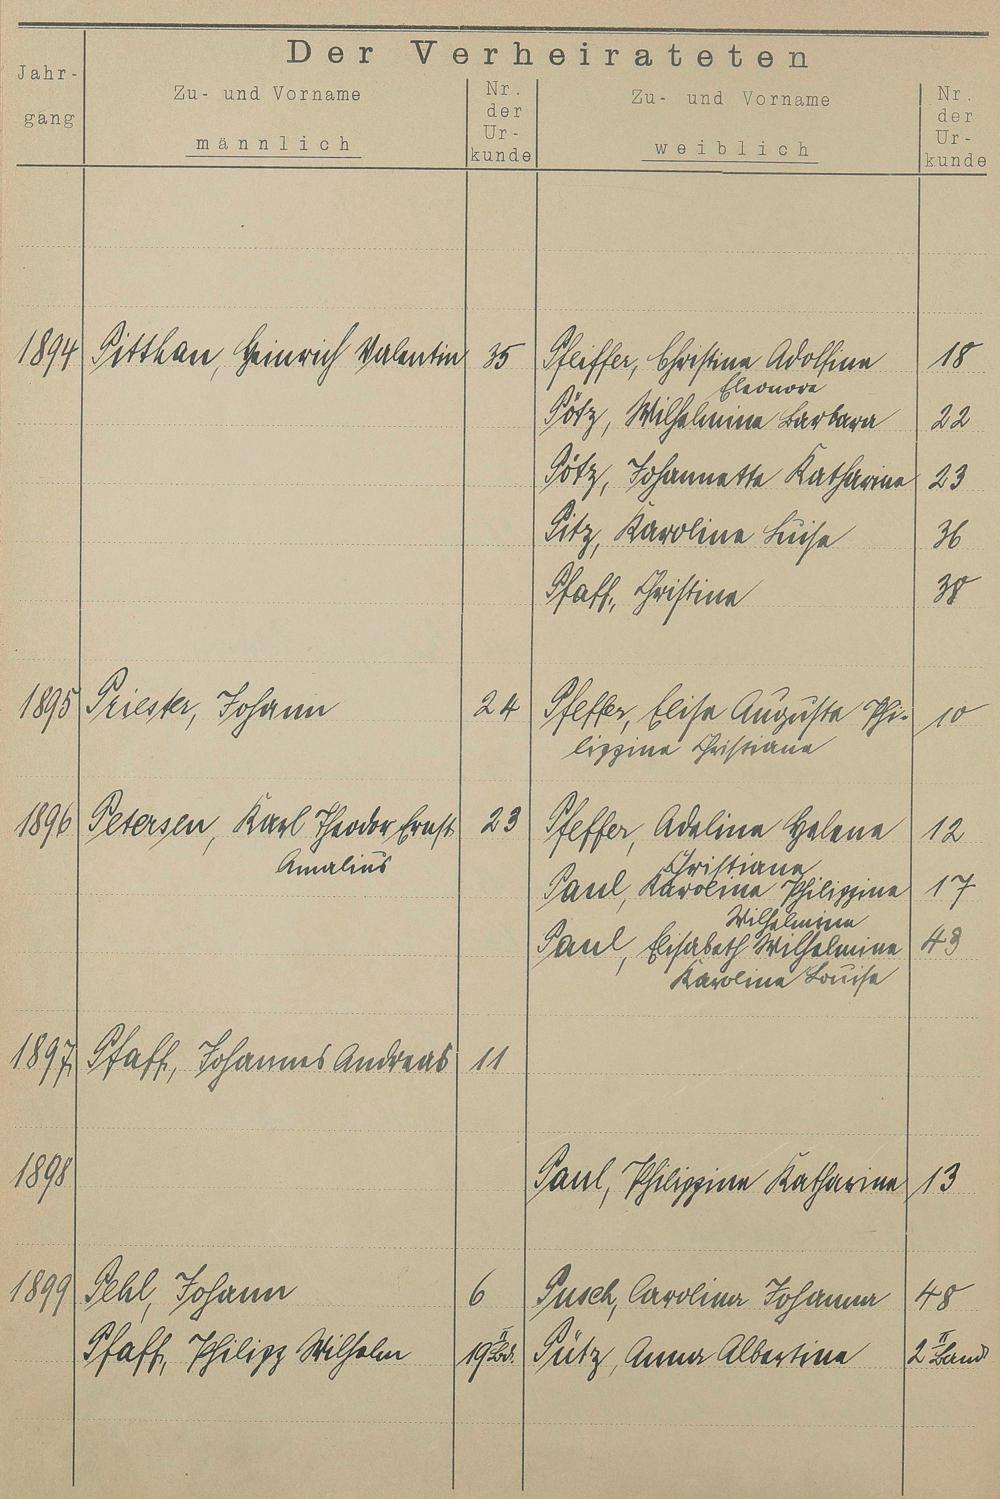 Der Verheirateten
Jahr-
gang
Zu- und Vorname
männlich
Nr.
der
Ur-
kunde
Zu- und Vorname
weiblich
Nr.
der
Ur-
kunde
1894 Pitthan, Heinrich Valentin 35 Pfeiffer, Christine Adolfine 18
Eleonore
Pötz, Wilhelmine Barbara 22
Pötz, Johannette Katharine 23
Pitz, Karoline Luise 36
Pfaff, Christine 38
1895 Priester, Johann 24 Pfeffer, Elise Auguste Phi- 10
lippine Christiane
1896 Petersen, Karl Theodor Ernst 23 Pfeffer, Adeline Helene 12
Amalius
Christiane
Paul, Karoline Philippine 17
Wilhelmine
Paul, Elisabeth Wilhelmine 43
Karoline Louise
1897 Pfaff, Johannes Andreas 11
1898 Paul, Philippine Katharine 13
1899 Pehl, Johann 6 Pusch, Carolina Johanna 48
Pfaff, Philipp Wilhelm 19 II Bd. Pütz, Anna Albertine 2 II Band